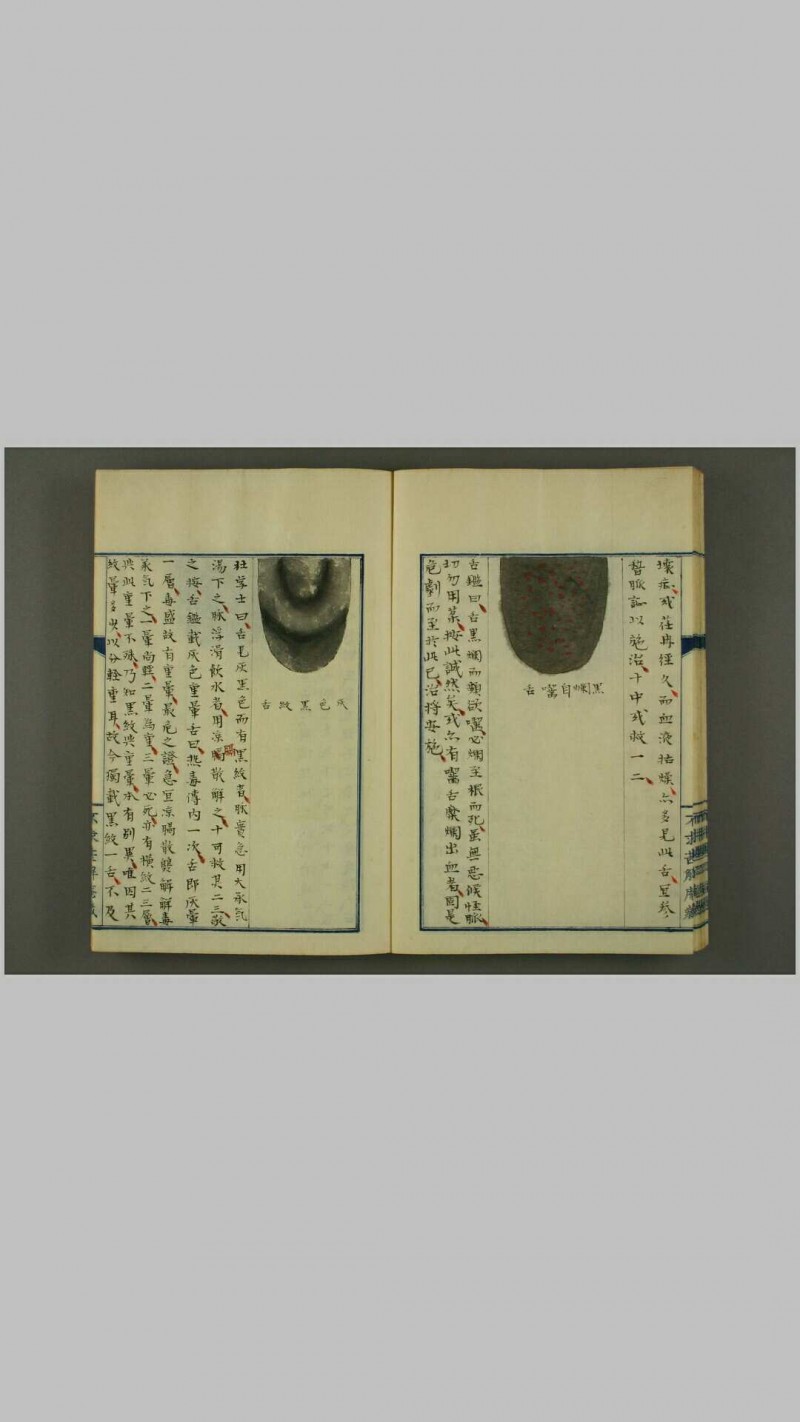 壞症或荏苒經久而血液枯燥亦多見此舌宜參
督脈證以施治十中或救一二
黑爛自嚙舌
舌鑑曰舌黑爛而頻欲嚙必爛至根而死虽無惡候怪脈
切勿用藥按此誠然矣或亦有嚙舌糜爛出血者因是
危劇而至於此已治將安施
灰色黑紋舌
杜學士曰舌見灰黑色而有黑紋者脈實急用大承氣
湯下之脈浮滑飲水者用凉膈散解之十可救其二三歌
之按舌鑑載灰色重暈舌曰熱毒傳内一次舌即灰暈
一層毒盛故有重暈最危之證急宜凉膈散雙解解毒
承氣下之一暈尚輕二暈為重三暈必死亦有橫紋二三層
與此重暈不殊乃知黑紋與重暈本有别異唯因其
紋暈多少以分輕重耳故今獨載黑紋一舌不及